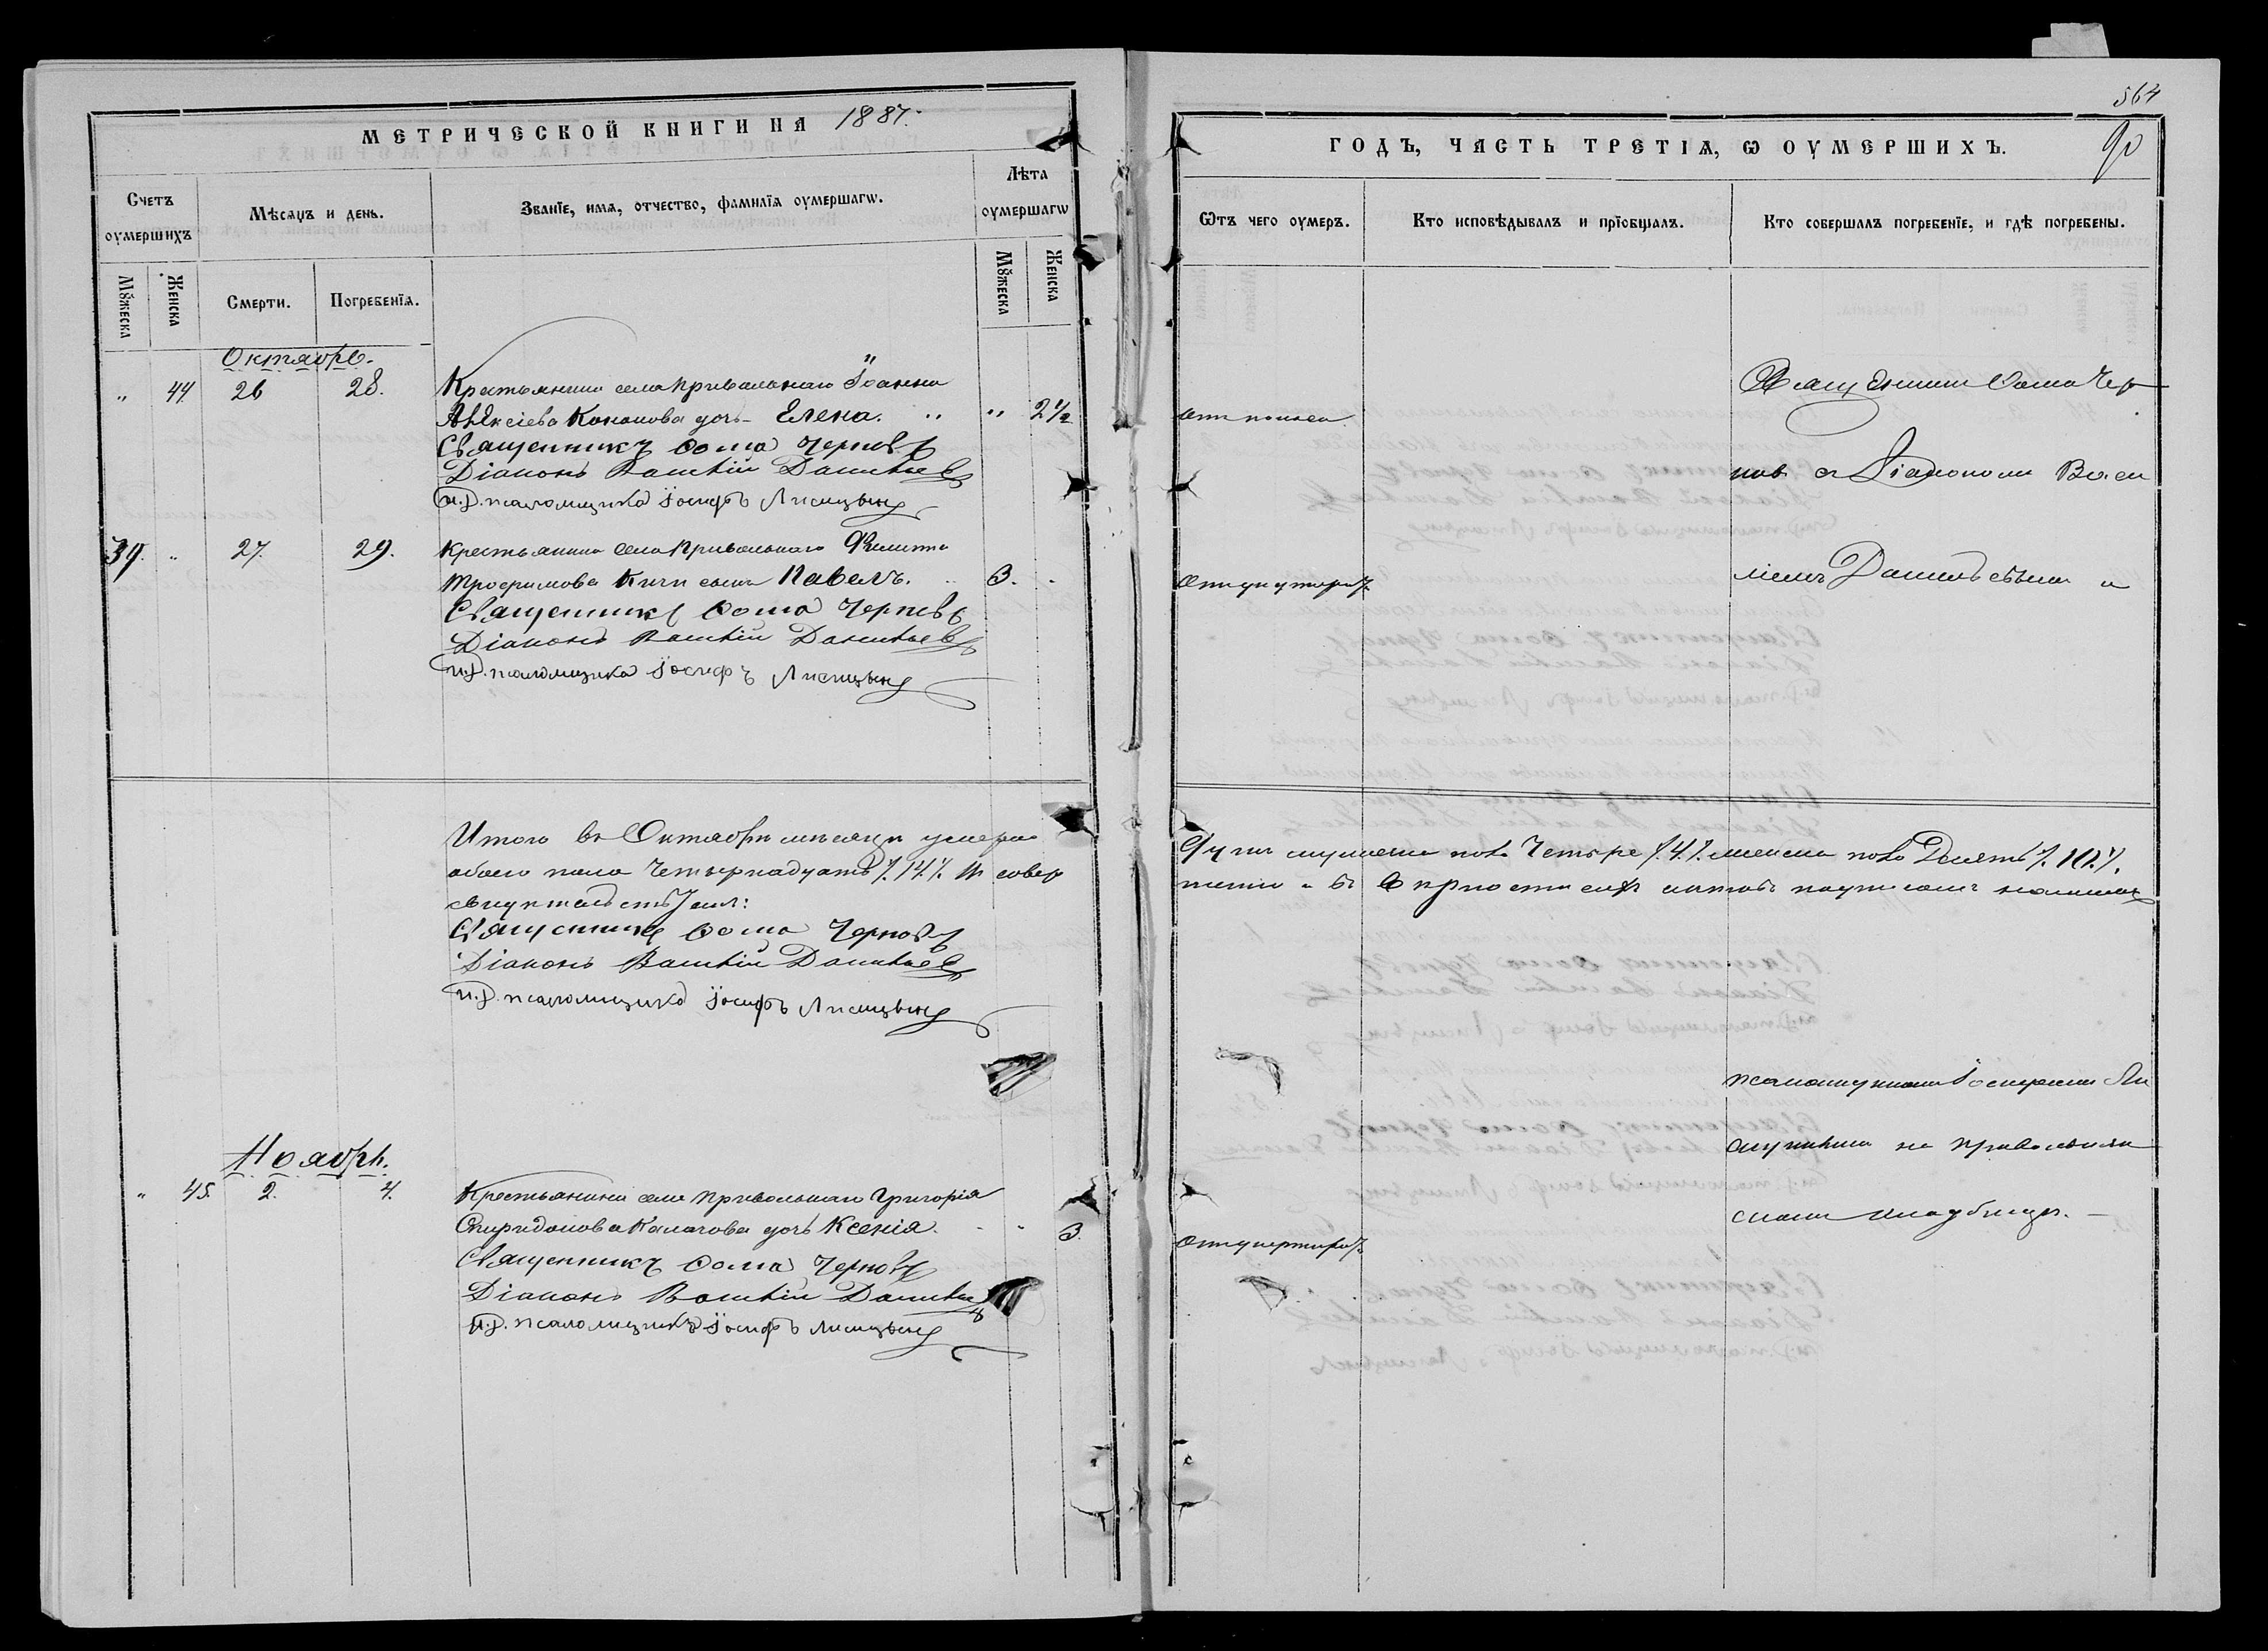 МЕТРИЧЕСКОЙ КНИГИ НА 1887.
Счетъ оумершихъ
Мѣсяцъ и день.
Званіе, имя, отчество, фамилія оумершагѡ.
Лѣта оумершагѡ
Мꙋжеска
Женска
Смерти.
Погребенія.
Мꙋжеска
Женска
Октябрь.
" 44 26 28. Крестьянина села Привольнаго Іоанна
Алексіева Кононова дочь Елена. " " 2½
Священникъ Ѳома Черновъ
Діаконъ Василій Данильевъ
и.д. псаломщика Іосифъ Лисицынъ
39. " 27. 29. Крестьянина села Привольнаго Филиппа
Трофимова Кичи сынъ Павелъ. " 3. "
Священникъ Ѳома Черновъ
Діаконъ Василій Данильевъ
и.д. псаломщика Іосифъ Лисицынъ
Итого въ Октябрѣ мѣсяцѣ умерло
обоего пола Четырнадцать /.14./.
Священникъ Ѳома Черновъ
Діаконъ Василій Данильевъ
и.д. псаломщика Іосифъ Лисицынъ
Ноябрь.
" 45. 2. 4. Крестьянина села Привольнаго Григорія
Спиридонова Калачова дочь Ксенія. - " 3.
Священникъ Ѳома Черновъ
Діаконъ Василій Данильевъ
и.д. псаломщика Іосифъ Лисицынъ
564
ГОДЪ, ЧАСТЬ ТРЕТІѦ, Ѡ ОУМЕРШИХЪ.
90
Ѿтъ чего оумеръ.
Кто исповѣдывалъ и пріобщалъ.
Кто совершалъ погребеніе, и гдѣ погребены.
Священникъ Ѳома Чер
отъ поноса
новъ съ Діакономъ Васи
ліемъ Данильевымъ и
Душъ мужеска пола Четыре /.4./. женска пола Десять /.10./.
псаломщикомъ Іосифомъ Ли
сицынымъ на Приволь
номъ кладбищѣ.